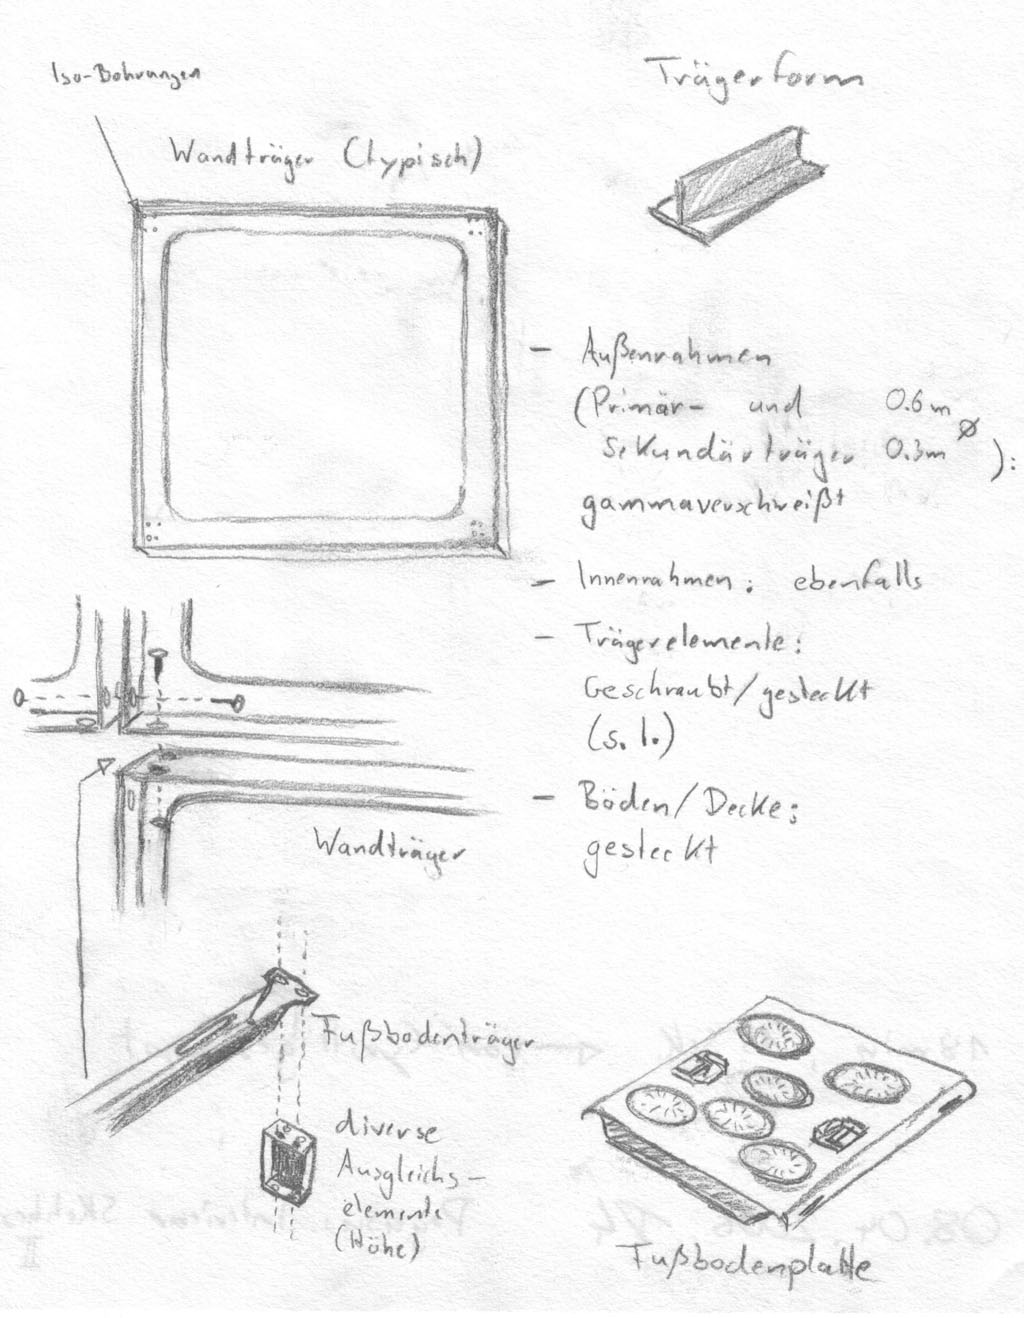 Iso-Bohrungen
Trägerform
Wandträger (typisch)
- Außenrahmen
(Primär- und 0.6m
sekundärträger 0.3m ⌀):
gammaverschweißt
- Innenrahmen: ebenfalls
- Trägerelemente:
Geschraubt/gesteckt
(s. l.)
- Böden/Decke:
gesteckt
Wandträger
Fußbodenträger
diverse
Ausgleichs-
elemente
(Höhe)
Fußbodenplatte